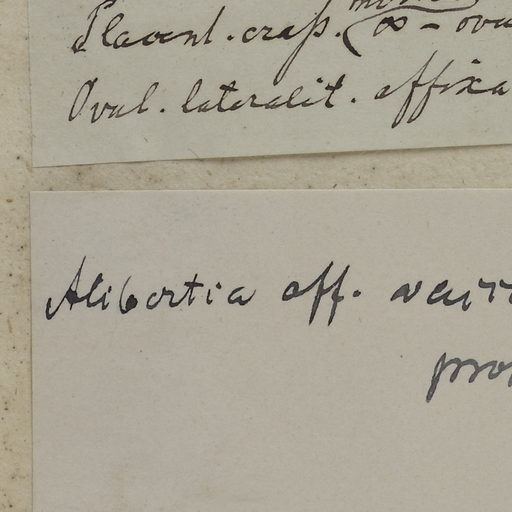 Placent. crass. (∞ - ovu
Oval. lateralit. affixa
Alibertia aff.